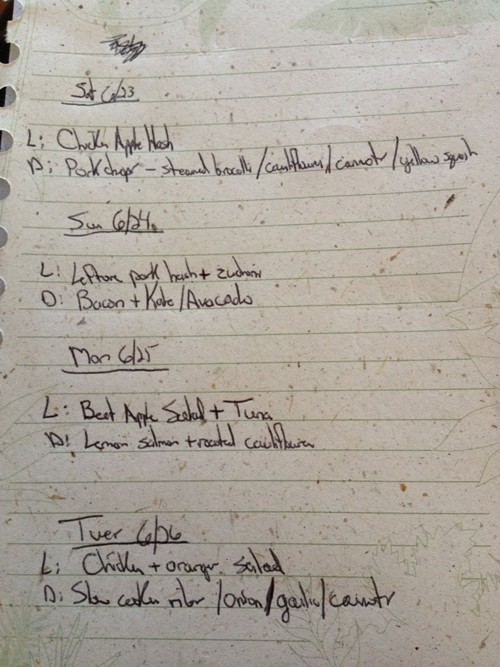 Sat 6/23
L: Chicken Apple Hash
D: Pork chops - steamed brocolli/cauliflower/carrots/yellow squash
Sun 6/24
L: Leftover pork hash + zucchini
D: Bacon + Kale/Avocado
Mon 6/25
L: Beet Apple Salad + Tuna
D: Lemon salmon + roasted cauliflower
Tues 6/26
L: Chicken + orange salad
D: Slow cooker ribs/onion/garlic/carrots